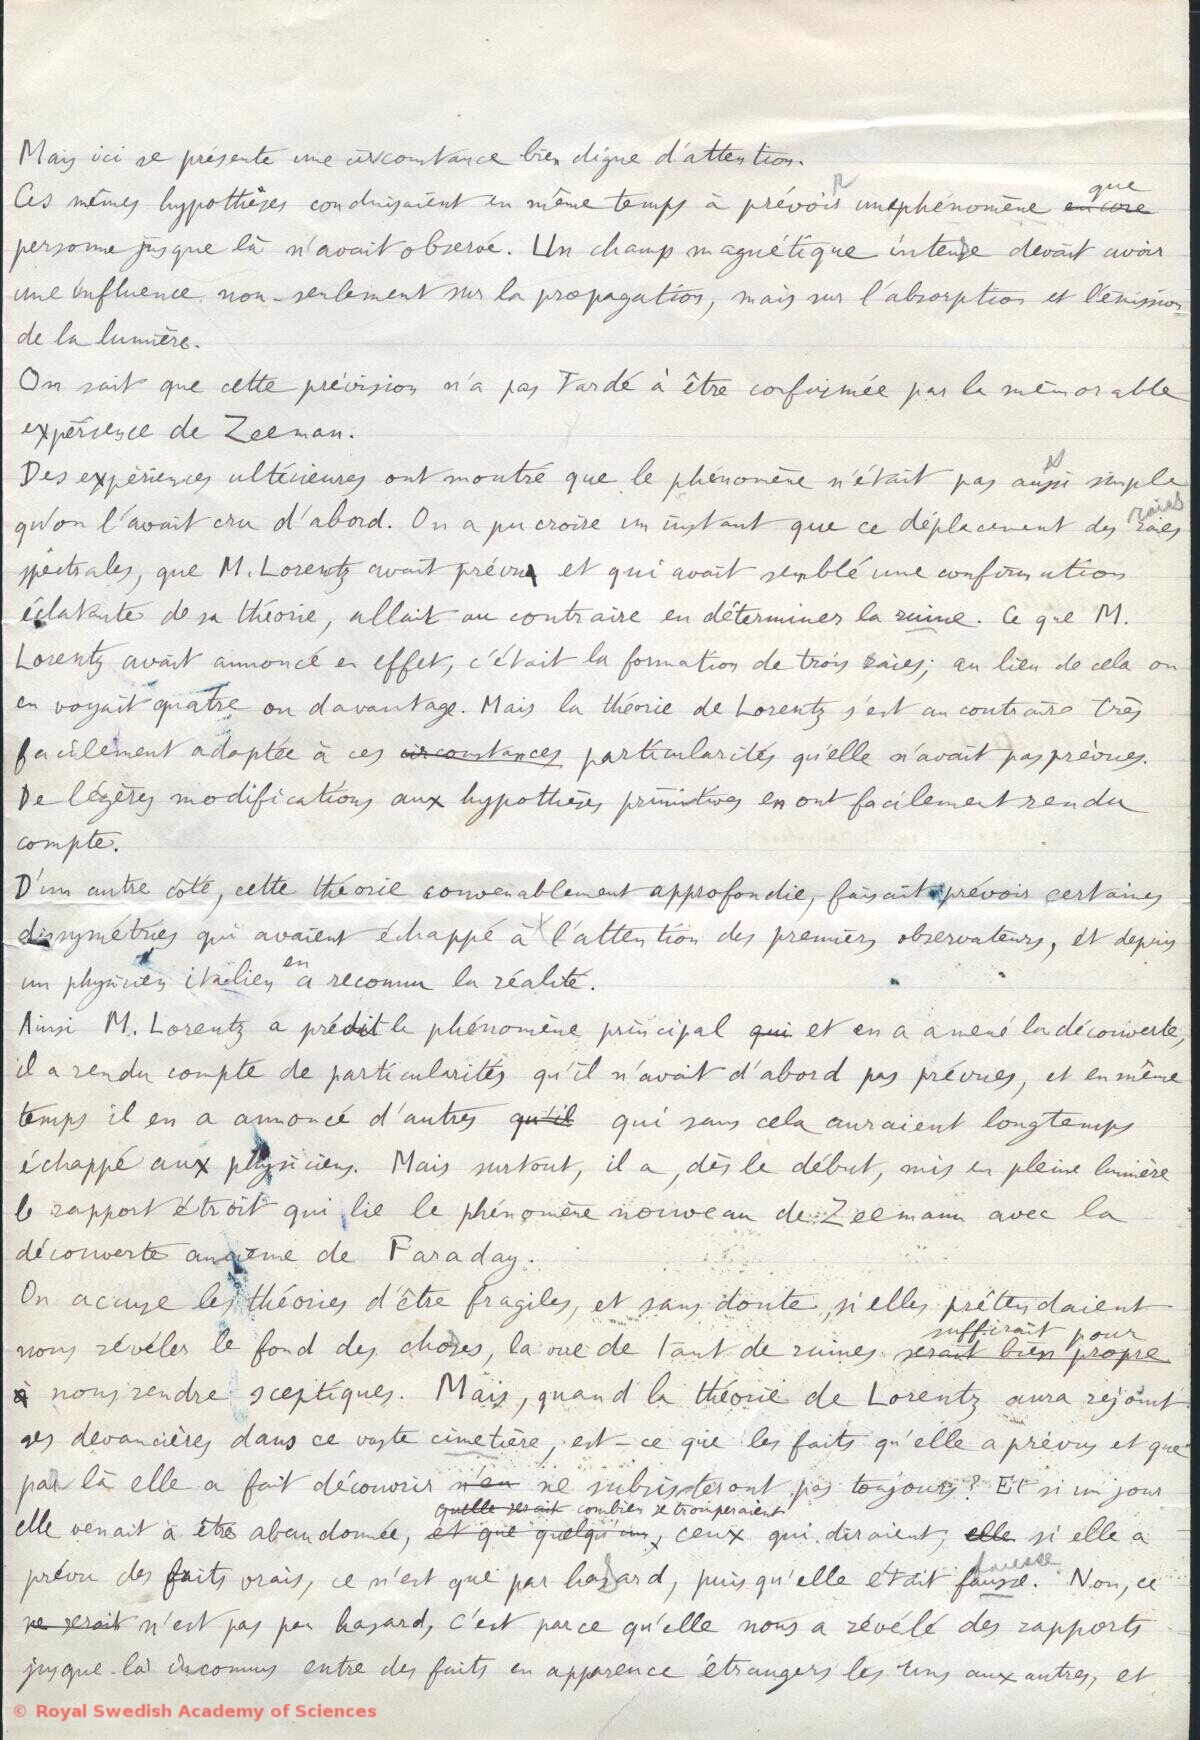 Mais ici se présente une circonstance bien digne d'attention.
Ces mêmes hypothèses conduisaient en même temps à prévoir un phénomène encore que
personne jusque là n'avait observé. Un champ magnétique intense devait avoir
une influence non-seulement sur la propagation, mais sur l'absorption et l'émission
de la lumière.
On sait que cette prévision n'a pas tardé à être confirmée par la mémorable
expérience de Zeeman.
Des expériences ultérieures ont montré que le phénomène n'était pas aussi simple
qu'on l'avait cru d'abord. On a pu croire un instant que ce déplacement des raies raies
spectrales, que M. Lorentz avait prévu et qui avait semblé une confirmation
éclatante de sa théorie, allait au contraire en déterminer la ruine. Ce que M.
Lorentz avait annoncé en effet, c'était la formation de trois raies; au lieu de cela on
en voyait quatre ou davantage. Mais la théorie de Lorentz s'est au contraire très
facilement adaptée à ces circonstances particularités qu'elle n'avait pas prévues.
De légères modifications aux hypothèses primitives en ont facilement rendu
compte.
D'un autre côté, cette théorie convenablement approfondie, faisait prévoir certaines
dissymétries qui avaient échappé à l'attention des premiers observateurs, et depuis
un physicien italien en a reconnu la réalité.
Ainsi M. Lorentz a prédit le phénomène principal qui et en a amené la découverte,
il a rendu compte de particularités qu'il n'avait d'abord pas prévues, et en même
temps il en a annoncé d'autres qu'il qui sans cela auraient longtemps
échappé aux physiciens. Mais surtout, il a, dès le début, mis en pleine lumière
le rapport étroit qui lie le phénomène nouveau de Zeemann avec la
découverte ancienne de Faraday.
On accuse les théories d'être fragiles, et sans doute, si elles prétendaient
nous révéler le fond des choses, la vue de tant de ruines serait bien propre suffirait pour
à nous rendre sceptiques. Mais, quand la théorie de Lorentz aura rejoint
ses devancières dans ce vaste cimetière, est-ce que les faits qu'elle a prévus et que
par là elle a fait découvrir n'en ne subsisteront pas toujours? Et si un jour
elle venait à être abandonnée, et que quelqu'un, quelle serait combien se tromperaient ceux qui diraient, elle si elle a
prévu des faits vrais, ce n'est que par hasard, puisqu'elle était fausse. fausse Non, ce
ne serait n'est pas par hasard, c'est parce qu'elle nous a révélé des rapports
jusque-là inconnus entre des faits en apparence étrangers les uns aux autres, et
© Royal Swedish Academy of Sciences